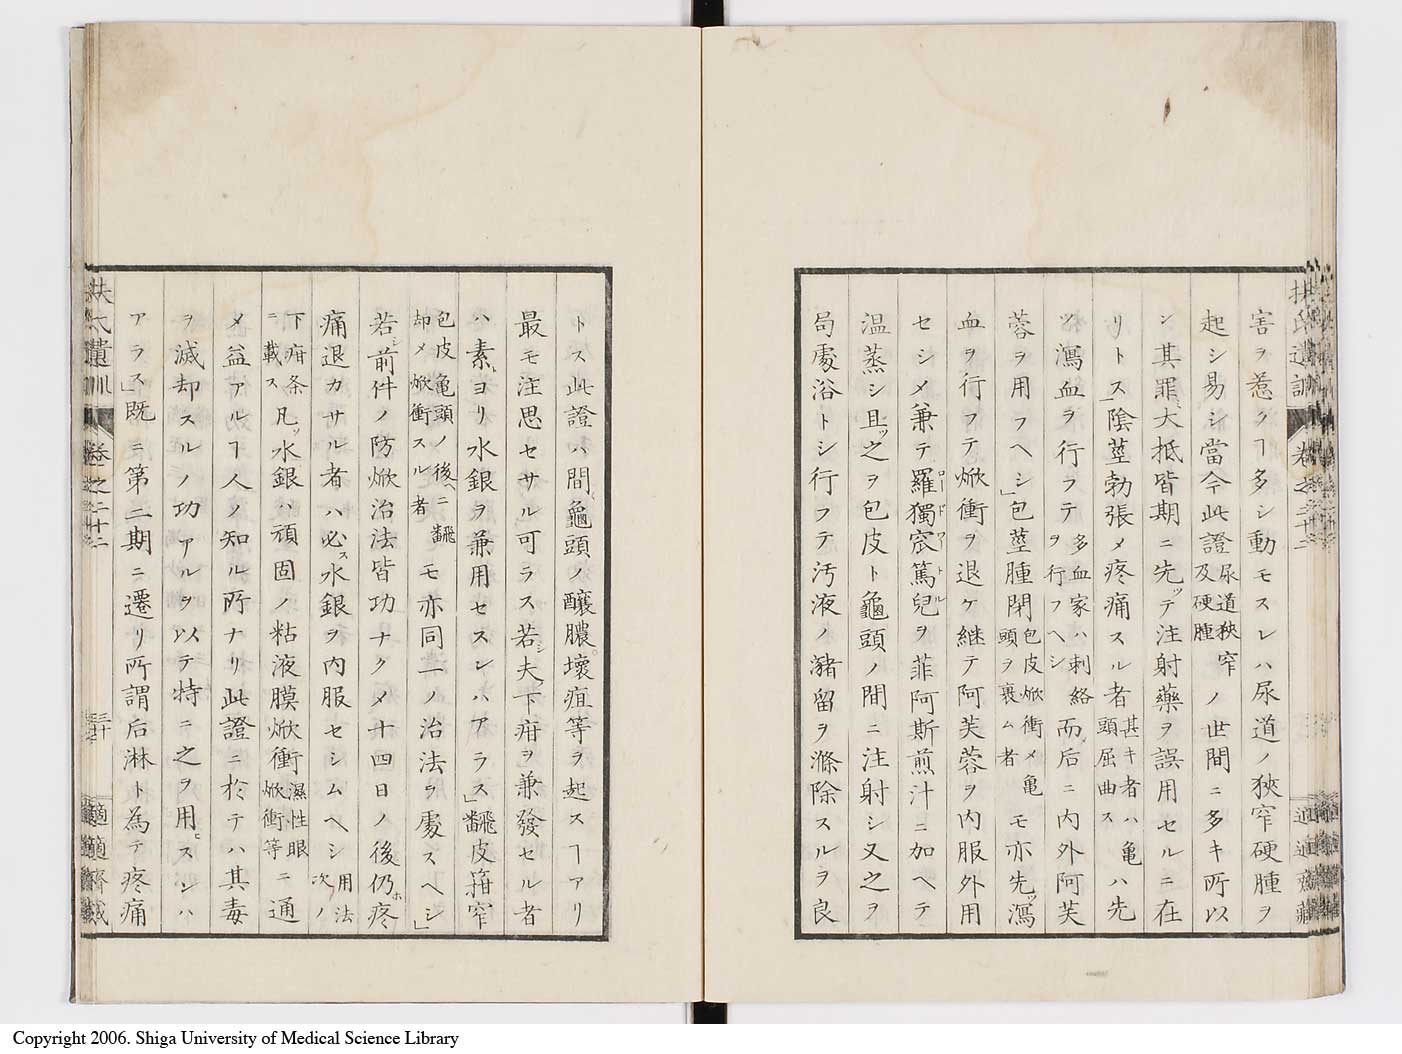 害ヲ惹クヿ多シ動モスレハ尿道ノ狹窄硬腫ヲ
起シ易シ當今此證尿道狹窄及硬腫ノ世間ニ多キ所以
ン其罪大抵皆期ニ先ッテ注射藥ヲ誤用セルニ在
リトス陰莖勃張メ疼痛スル者甚キ者ハ亀頭屈曲スハ先
ツ瀉血ヲ行フテ多血家ハ刺絡ヲ行フヘシ而后ニ内外阿芙
蓉ヲ用フヘシ」包莖腫閉包皮焮衝メ亀頭ヲ裹ム者モ亦先ッ瀉
血ヲ行フテ焮衝ヲ退ケ継テ阿芙蓉ヲ内服外用
セシメ兼テ羅獨宼篤兒ロードアートルヲ菲阿斯煎汁ニ加ヘテ
温蒸シ且ッ之ヲ包皮ト龜頭ノ間ニ注射シ又之ヲ
局處浴トシ行フテ汚液ノ瀦留ヲ滌除スルヲ良
扶氏遺訓 卷之二十二 適適齋藏
トス此證ハ間龜頭ノ釀膿壞疽等ヲ起スヿアリ
最モ注思セサル可ラス若シ夫レ下疳ヲ兼發セル者
ハ素ヨリ水銀ヲ兼用セスンハアラス」飜皮箝窄
包皮亀頭ノ後ヘニ飜却メ焮衝スル者モ亦同一ノ治法ヲ處スヘシ」
若シ前件ノ防焮治法皆功ナクメ十四日ノ後仍ホ疼
痛退カサル者ハ必ス水銀ヲ内服セシムヘシ用法次ノ
下疳条ニ載ス凡ッ水銀ハ頑固ノ粘液膜焮衝濕性眼焮衝等ニ通
メ益アルヿ人ノ知ル所ナリ此證ニ於テハ其毒
ヲ滅却スルノ功アルヲ以テ特ニ之ヲ用ヒスンハ
アラス」既ニ第二期ニ遷リ所謂后淋ト為テ疼痛
扶氏遺訓 卷之二十二 三十 適適齋藏
Copyright 2006. Shiga University of Medical Science Library